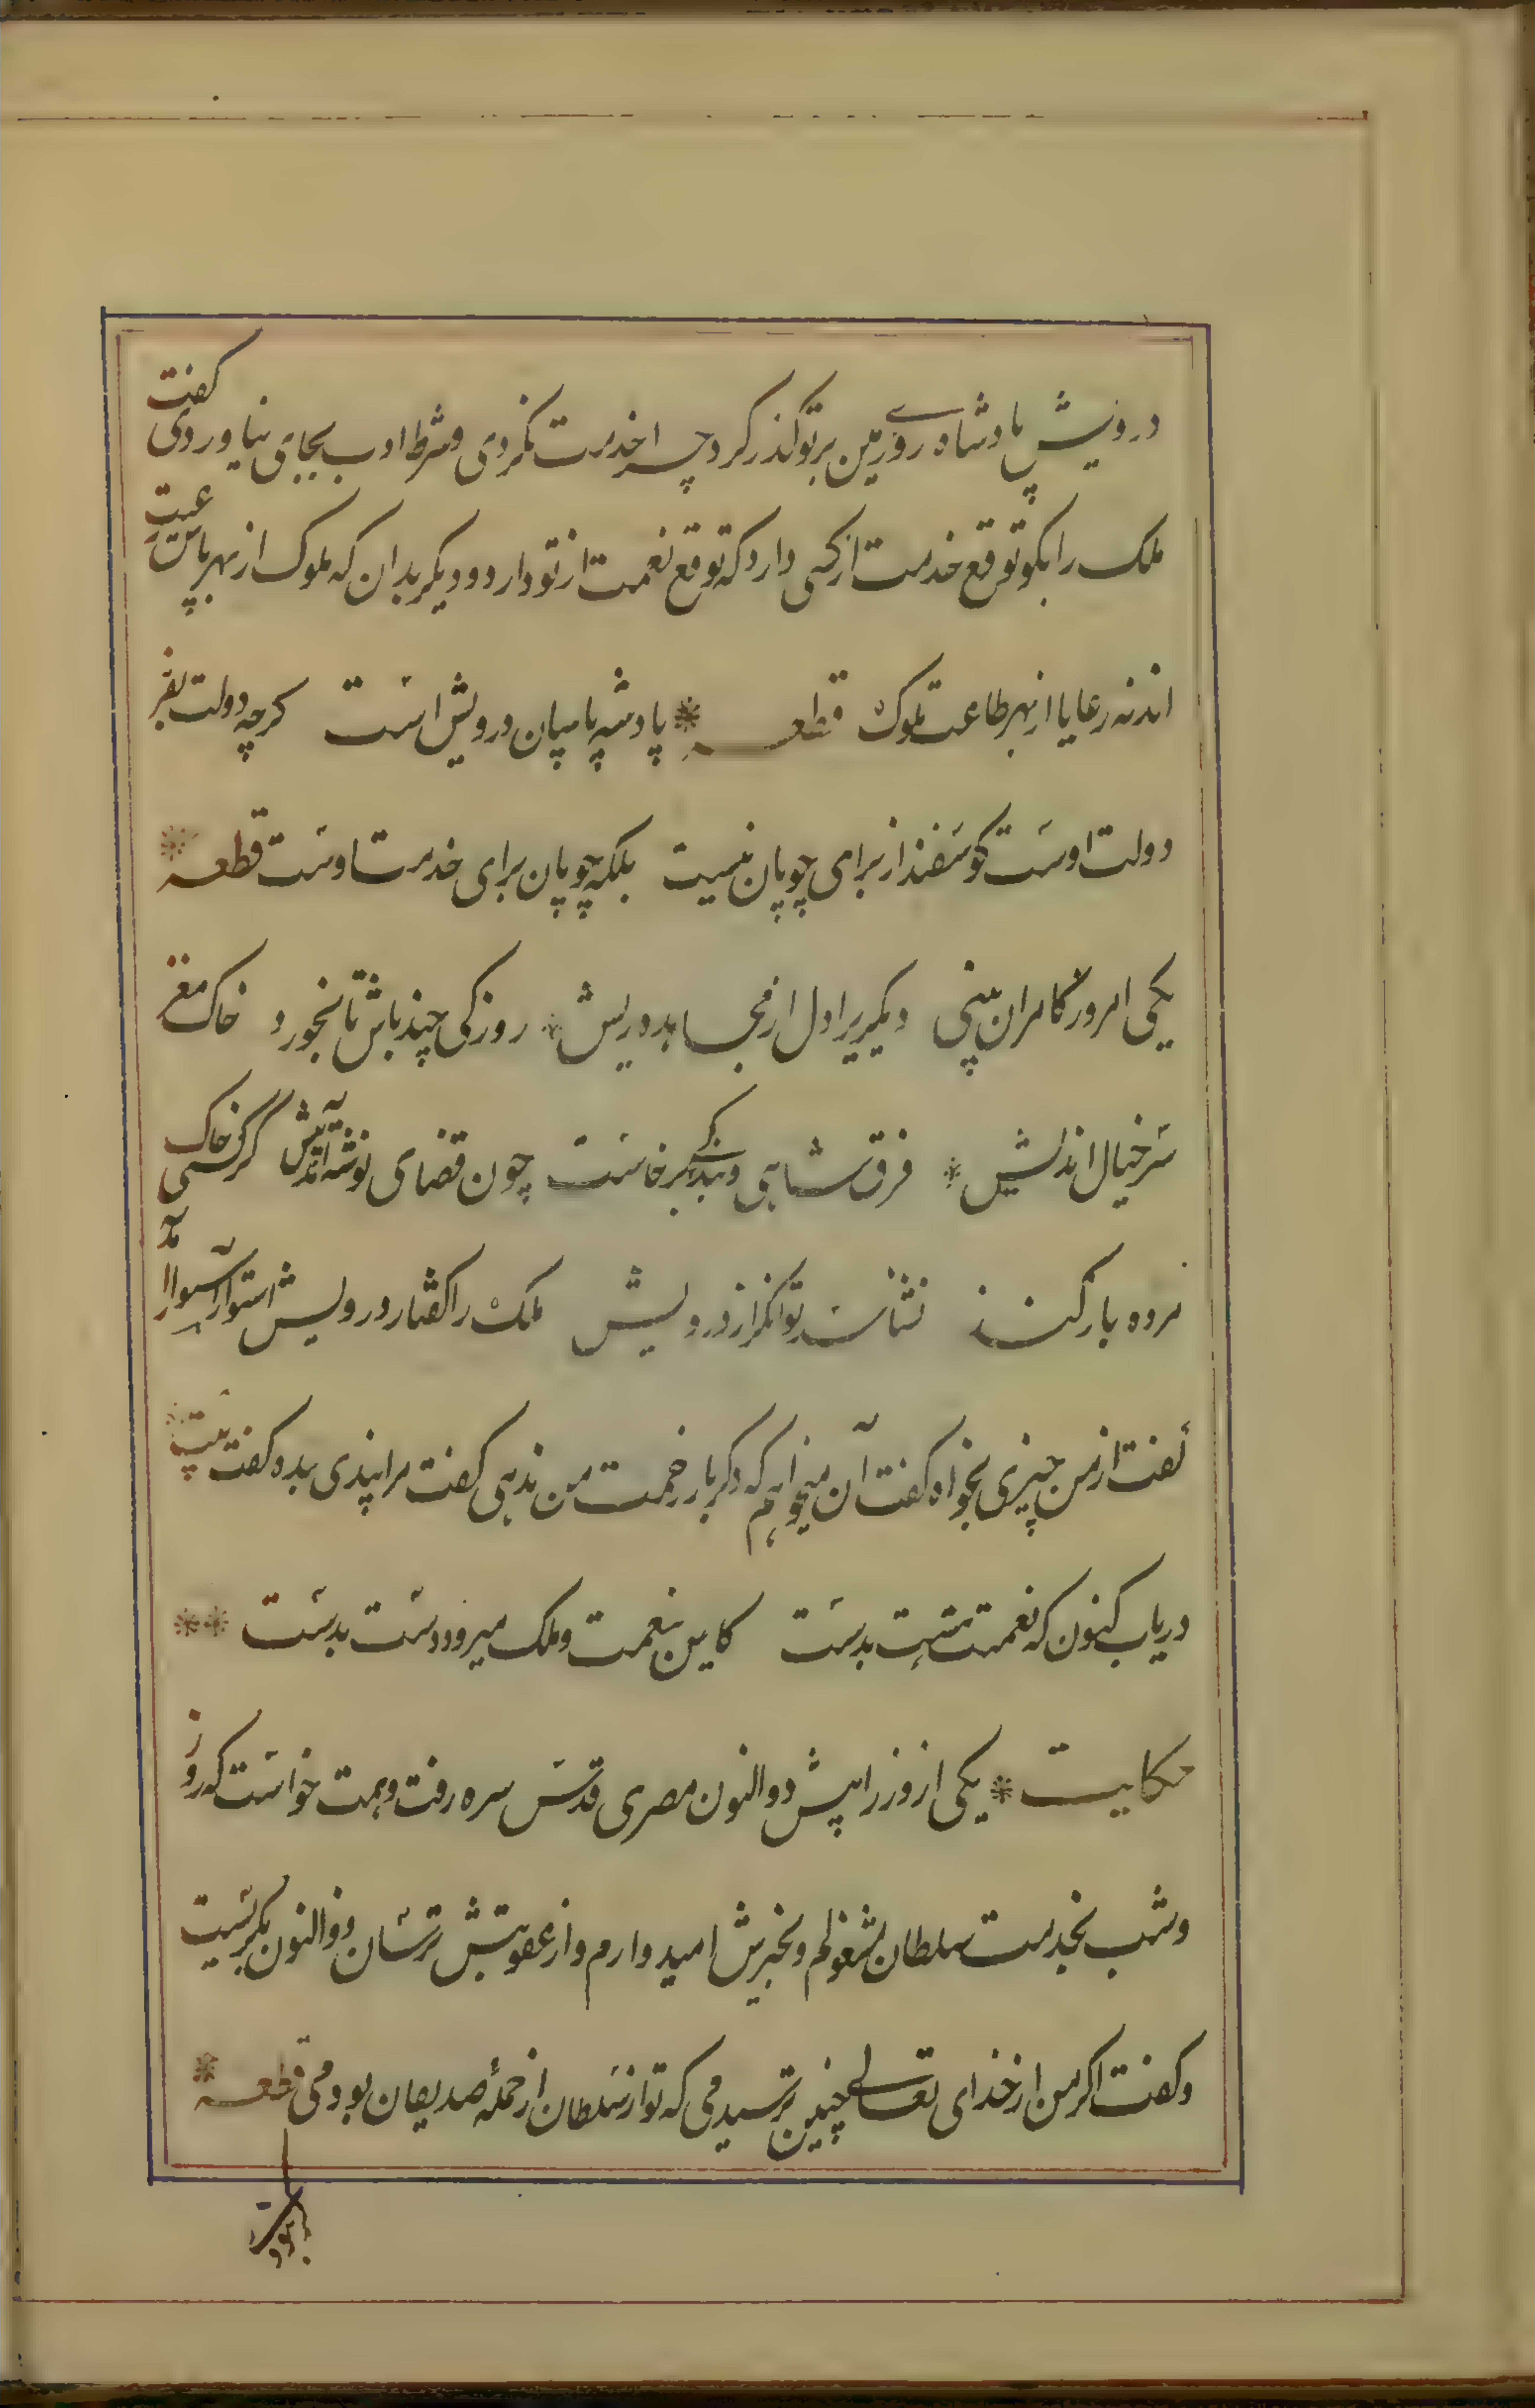 درویش پادشاه روی زمین بر تو گذر کرد چرا خدمت نکردی و شرط ادب بجای نیاوردی گفت
ملک را بگو توقع خدمت از کسی دارد که توقع نعمت از تو دارد و دیگر بدان که ملوک از بهر پاس رعیت
اند نه رعایا از بهر طاعت ملوک قطعه * پادشه پاسبان درویش است گرچه دولت بفر
دولت اوست گوسفند از برای چوپان نیست بلکه چوپان برای خدمت اوست قطعه *
یکی امروز کامران بینی دیگریرا دل از مجاهده ریش * روزکی چند باش تا بخورد خاک مغز
سر خیال اندیش * فرق شاهی و بندگی برخاست چون قضای نوشته آمد پیش گر کسی خاک
مرده باز کند نشناسد توانگر از درویش ملک را گفتار درویش استوار آمد
گفت از من چیزی بخواه گفت آن میخواهم که دگر بار زحمت من ندهی گفت مرا پندی بده گفت بیت
دریاب کنون که نعمتت هست بدست کاین نعمت و ملک میرود دست بدست **
حکایت * یکی از وزرا پیش ذوالنون مصری قدس سره رفت و همت خواست که روز
و شب بخدمت سلطان مشغولم و بخیرش امیدوارم و از عقوبتش ترسان ذوالنون بگریست
و گفت اگر من از خدای تعالی چنین ترسیدمی که تو از سلطان از جمله صدیقان بودمی قطعه *